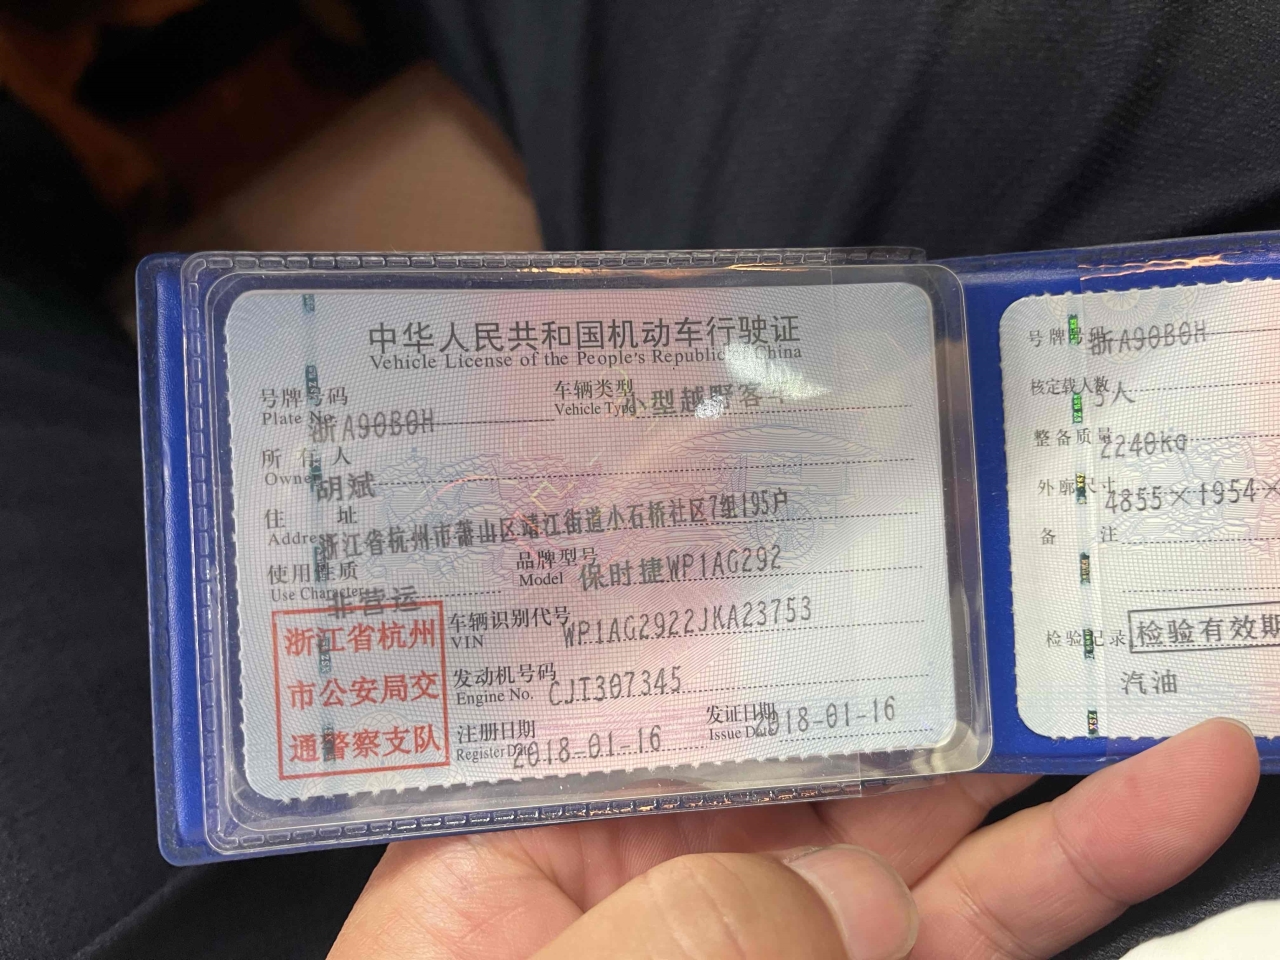 中华人民共和国机动车行驶证
Vehicle License of the People's Republic of China
号牌号码
Plate No.
浙A90B0H
车辆类型
Vehicle Type
小型越野客车
所有人
Owner
胡斌
住址
Address
浙江省杭州市萧山区靖江街道小石桥社区7组195户
使用性质
Use Character
非营运
品牌型号
Model
保时捷WP1AG292
车辆识别代号
VIN
WP1AG2922JKA23753
发动机号码
Engine No.
CJT307345
注册日期
Register Date
2018-01-16
发证日期
Issue Date
2018-01-16
浙江省杭州
市公安局交
通警察支队
号牌号码
浙A90B0H
核定载人数
5人
整备质量
2240kg
外廓尺寸
4855×1954×
备注
检验记录
检验有效期
汽油